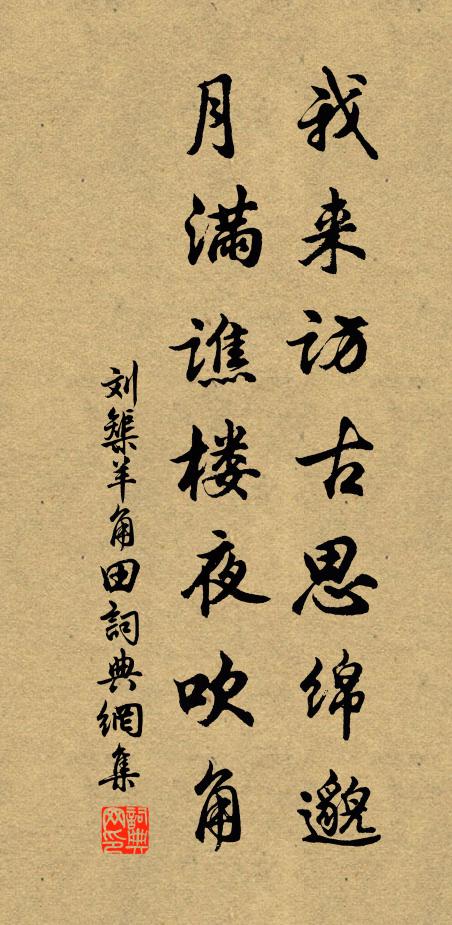 我来访古思绵邈
月满谯楼夜吹角
刘槊羊角田詞典網集
詞典
网印